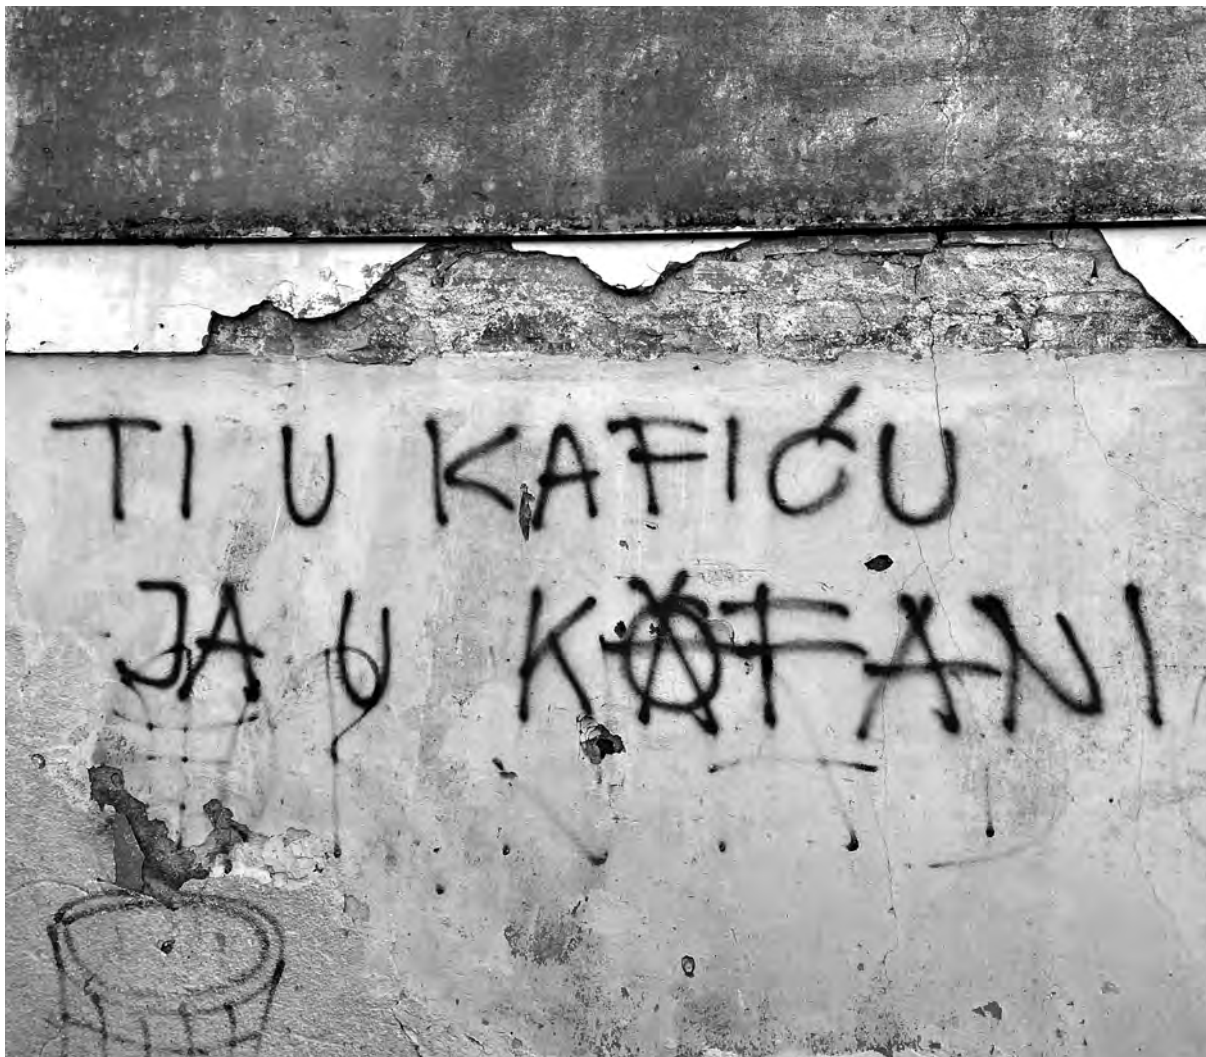 TI U KAFIĆU
JA U KAFANI